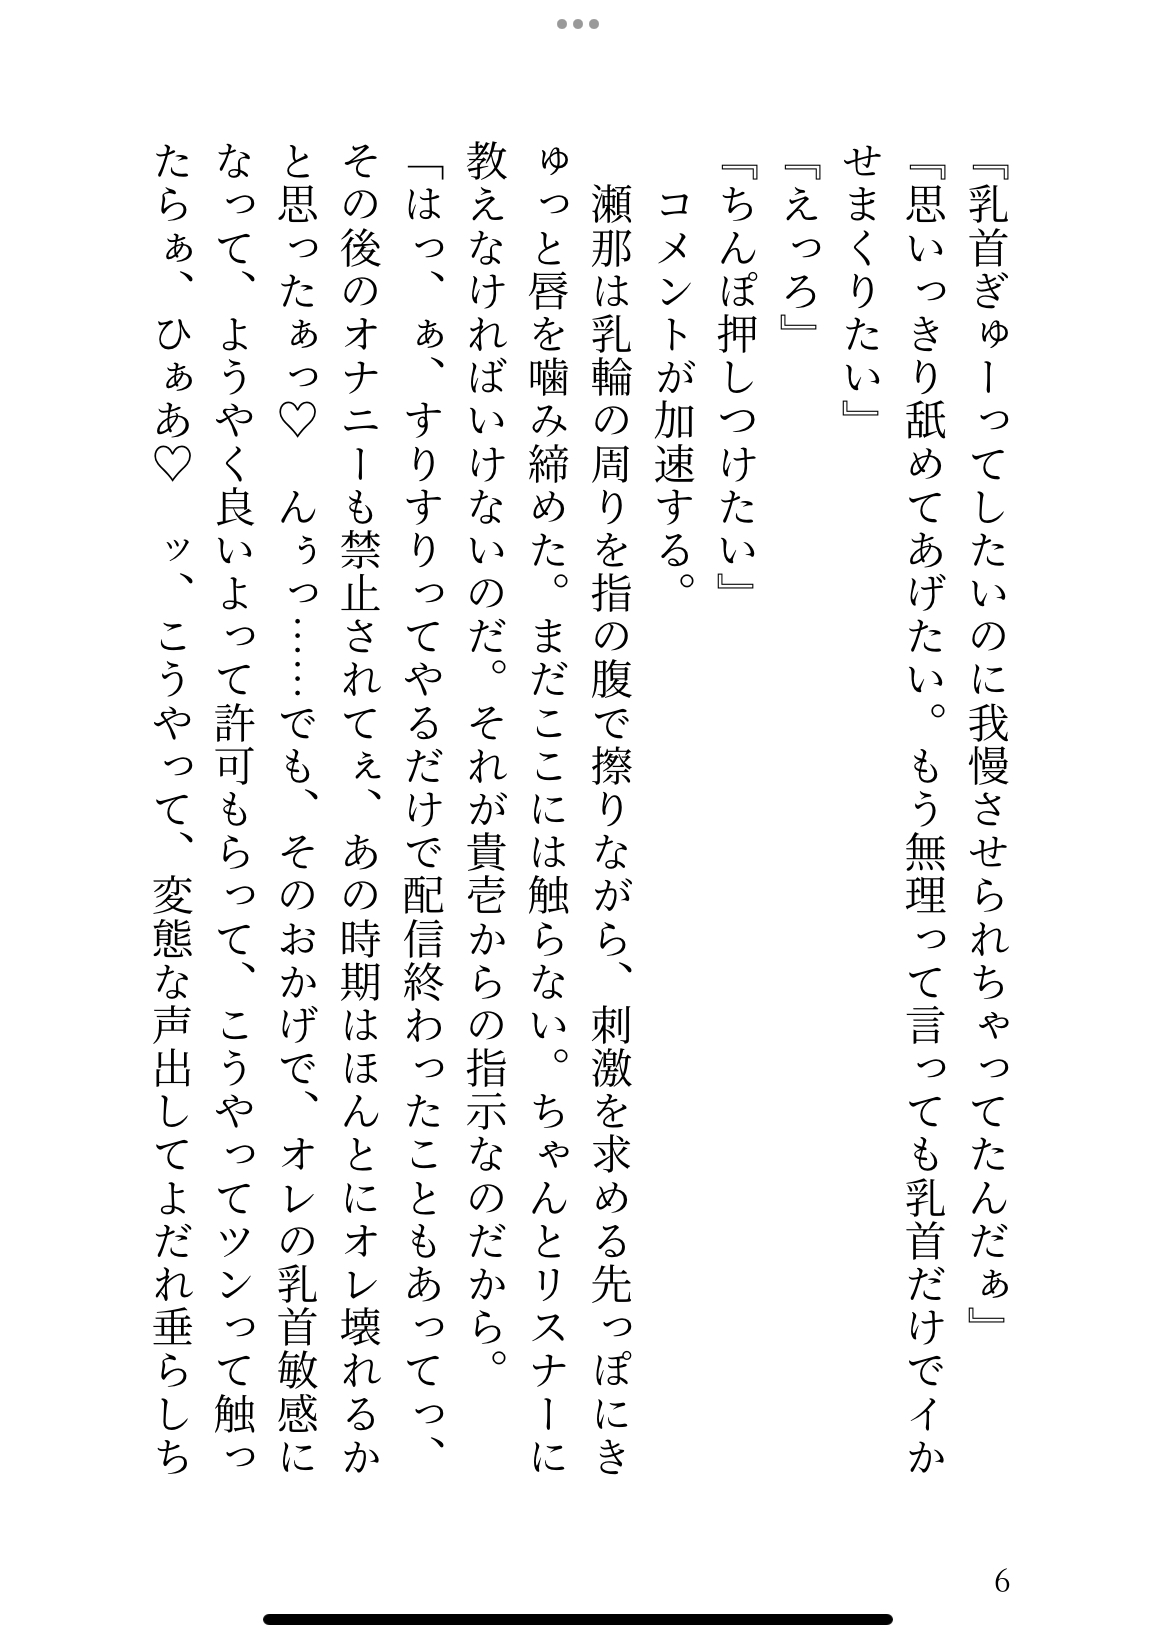 『乳首ぎゅーってしたいのに我慢させられちゃってたんだぁ』
『思いっきり舐めてあげたい。もう無理って言っても乳首だけでイか
せまくりたい』
『えっろ』
『ちんぽ押しつけたい』
　コメントが加速する。
　瀬那は乳輪の周りを指の腹で擦りながら、刺激を求める先っぽにき
ゅっと唇を噛み締めた。まだここには触らない。ちゃんとリスナーに
教えなければいけないのだ。それが貴壱からの指示なのだから。
「はっ、ぁ、すりすりってやるだけで配信終わったこともあってっ、
その後のオナニーも禁止されてぇ、あの時期はほんとにオレ壊れるか
と思ったぁっ♡　んぅっ……でも、そのおかげで、オレの乳首敏感に
なって、ようやく良いよって許可もらって、こうやってツンって触っ
たらぁ、ひぁあ♡　ッ、こうやって、変態な声出してよだれ垂らしち
6